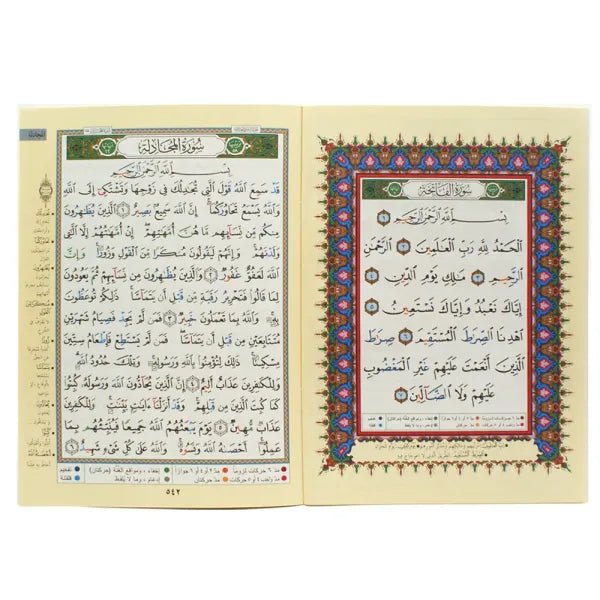 سُورَةُ الفَاتِحَةِ
بِسْمِ ٱللَّهِ ٱلرَّحْمَٰنِ ٱلرَّحِيمِ ١
ٱلْحَمْدُ لِلَّهِ رَبِّ ٱلْعَٰلَمِينَ ٢ ٱلرَّحْمَٰنِ
ٱلرَّحِيمِ ٣ مَٰلِكِ يَوْمِ ٱلدِّينِ ٤
إِيَّاكَ نَعْبُدُ وَإِيَّاكَ نَسْتَعِينُ ٥
ٱهْدِنَا ٱلصِّرَٰطَ ٱلْمُسْتَقِيمَ ٦ صِرَٰطَ
ٱلَّذِينَ أَنْعَمْتَ عَلَيْهِمْ غَيْرِ ٱلْمَغْضُوبِ
عَلَيْهِمْ وَلَا ٱلضَّآلِّينَ ٧
سُورَةُ المُجَادلة
بِسْمِ ٱللَّهِ ٱلرَّحْمَٰنِ ٱلرَّحِيمِ
قَدْ سَمِعَ ٱللَّهُ قَوْلَ ٱلَّتِى تُجَٰدِلُكَ فِى زَوْجِهَا وَتَشْتَكِىٓ إِلَى ٱللَّهِ
وَٱللَّهُ يَسْمَعُ تَحَاوُرَكُمَآ إِنَّ ٱللَّهَ سَمِيعٌۢ بَصِيرٌ ١ ٱلَّذِينَ يُظَٰهِرُونَ
مِنكُم مِّن نِّسَآئِهِم مَّا هُنَّ أُمَّهَٰتِهِمْ إِنْ أُمَّهَٰتُهُمْ إِلَّا ٱلَّٰٓـِٔى
وَلَدْنَهُمْ وَإِنَّهُمْ لَيَقُولُونَ مُنكَرًا مِّنَ ٱلْقَوْلِ وَزُورًا وَإِنَّ
ٱللَّهَ لَعَفُوٌّ غَفُورٌ ٢ وَٱلَّذِينَ يُظَٰهِرُونَ مِن نِّسَآئِهِمْ ثُمَّ يَعُودُونَ
لِمَا قَالُوا۟ فَتَحْرِيرُ رَقَبَةٍ مِّن قَبْلِ أَن يَتَمَآسَّا ذَٰلِكُمْ تُوعَظُونَ
بِهِۦ وَٱللَّهُ بِمَا تَعْمَلُونَ خَبِيرٌ ٣ فَمَن لَّمْ يَجِدْ فَصِيَامُ شَهْرَيْنِ
مُتَتَابِعَيْنِ مِن قَبْلِ أَن يَتَمَآسَّا فَمَن لَّمْ يَسْتَطِعْ فَإِطْعَامُ سِتِّينَ
مِسْكِينًا ذَٰلِكَ لِتُؤْمِنُوا۟ بِٱللَّهِ وَرَسُولِهِۦ وَتِلْكَ حُدُودُ ٱللَّهِ
وَلِلْكَٰفِرِينَ عَذَابٌ أَلِيمٌ ٤ إِنَّ ٱلَّذِينَ يُحَآدُّونَ ٱللَّهَ وَرَسُولَهُۥ كُبِتُوا۟
كَمَا كُبِتَ ٱلَّذِينَ مِن قَبْلِهِمْ وَقَدْ أَنزَلْنَآ ءَايَٰتٍۭ بَيِّنَٰتٍ وَلِلْكَٰفِرِينَ
عَذَابٌ مُّهِينٌ ٥ يَوْمَ يَبْعَثُهُمُ ٱللَّهُ جَمِيعًا فَيُنَبِّئُهُم بِمَا
عَمِلُوٓا۟ أَحْصَىٰهُ ٱللَّهُ وَنَسُوهُ وَٱللَّهُ عَلَىٰ كُلِّ شَىْءٍ شَهِيدٌ ٦
مدّ ٦ حركات لزوماً مدّ ٢ أو ٤ أو ٦ جوازاً إخفاء، ومواقع الغُنَّة (حركتان) تفخيم
مدّ واجب ٤ أو ٥ حركات مدّ حركتان إدغام، وما لا يُلفَظ قلقلة
٥٤٢
المجادلة